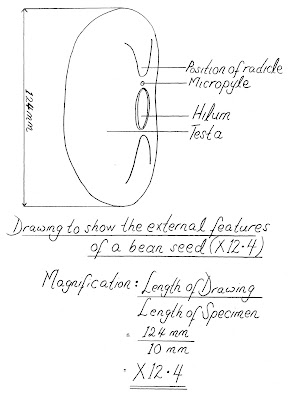 124mm
Position of radicle
Micropyle
Hilum
Testa
Drawing to show the external features
of a bean seed (X12·4)
Magnification: Length of Drawing
Length of Specimen
= 124 mm
10 mm
= X12·4